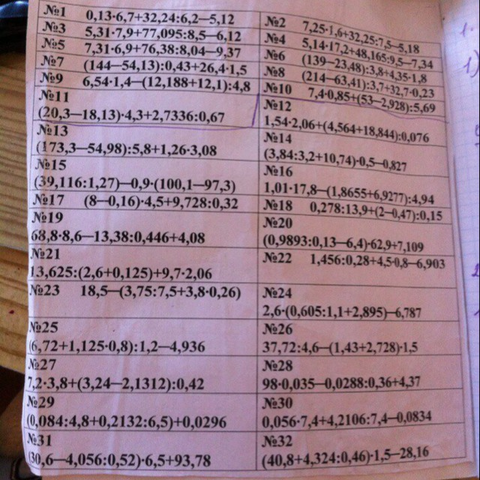 №1 0,13·6,7+32,24:6,2—5,12
№2 7,25·1,6+32,25:7,5—5,18
№3 5,31·7,9+77,095:8,5—6,12
№4 5,14·17,2+48,165:9,5—7,34
№5 7,31·6,9+76,38:8,04—9,37
№6 (139—23,48):3,8+4,35·1,8
№7 (144—54,13):0,43+26,4·1,5
№8 (214—63,41):3,7+32,7·0,23
№9 6,54·1,4—(12,188+12,1):4,8
№10 7,4·0,85+(53—2,928):5,69
№11
(20,3—18,13)·4,3+2,7336:0,67
№12
1,54·2,06+(4,564+18,844):0,076
№13
(173,3—54,98):5,8+1,26·3,08
№14
(3,84:3,2+10,74)·0,5—0,827
№15
(39,116:1,27)—0,9·(100,1—97,3)
№16
1,01·17,8—(1,8655+6,9277):4,94
№17 (8—0,16)·4,5+9,728:0,32
№18 0,278:13,9+(2—0,47):0,15
№19
68,8·8,6—13,38:0,446+4,08
№20
(0,9893:0,13—6,4)·62,9+7,109
№21
13,625:(2,6+0,125)+9,7·2,06
№22 1,456:0,28+4,5·0,8—6,903
№23 18,5—(3,75:7,5+3,8·0,26)
№24
2,6·(0,605:1,1+2,895)—6,787
№25
(6,72+1,125·0,8):1,2—4,936
№26
37,72:4,6—(1,43+2,728)·1,5
№27
7,2·3,8+(3,24—2,1312):0,42
№28
98·0,035—0,0288:0,36+4,37
№29
(0,084:4,8+0,2132:6,5)+0,0296
№30
0,056·7,4+4,2106:7,4—0,0834
№31
(30,6—4,056:0,52)·6,5+93,78
№32
(40,8+4,324:0,46)·1,5—28,16